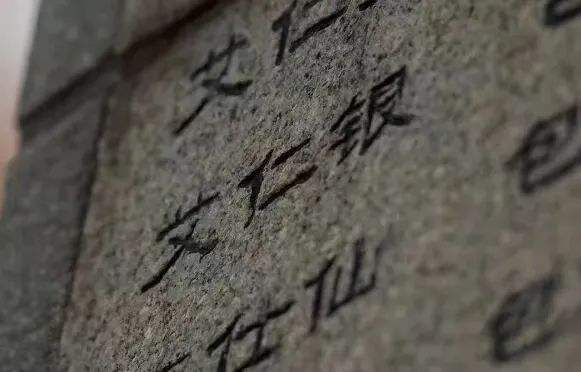 艾仁
艾仁银
仕仙
包
包